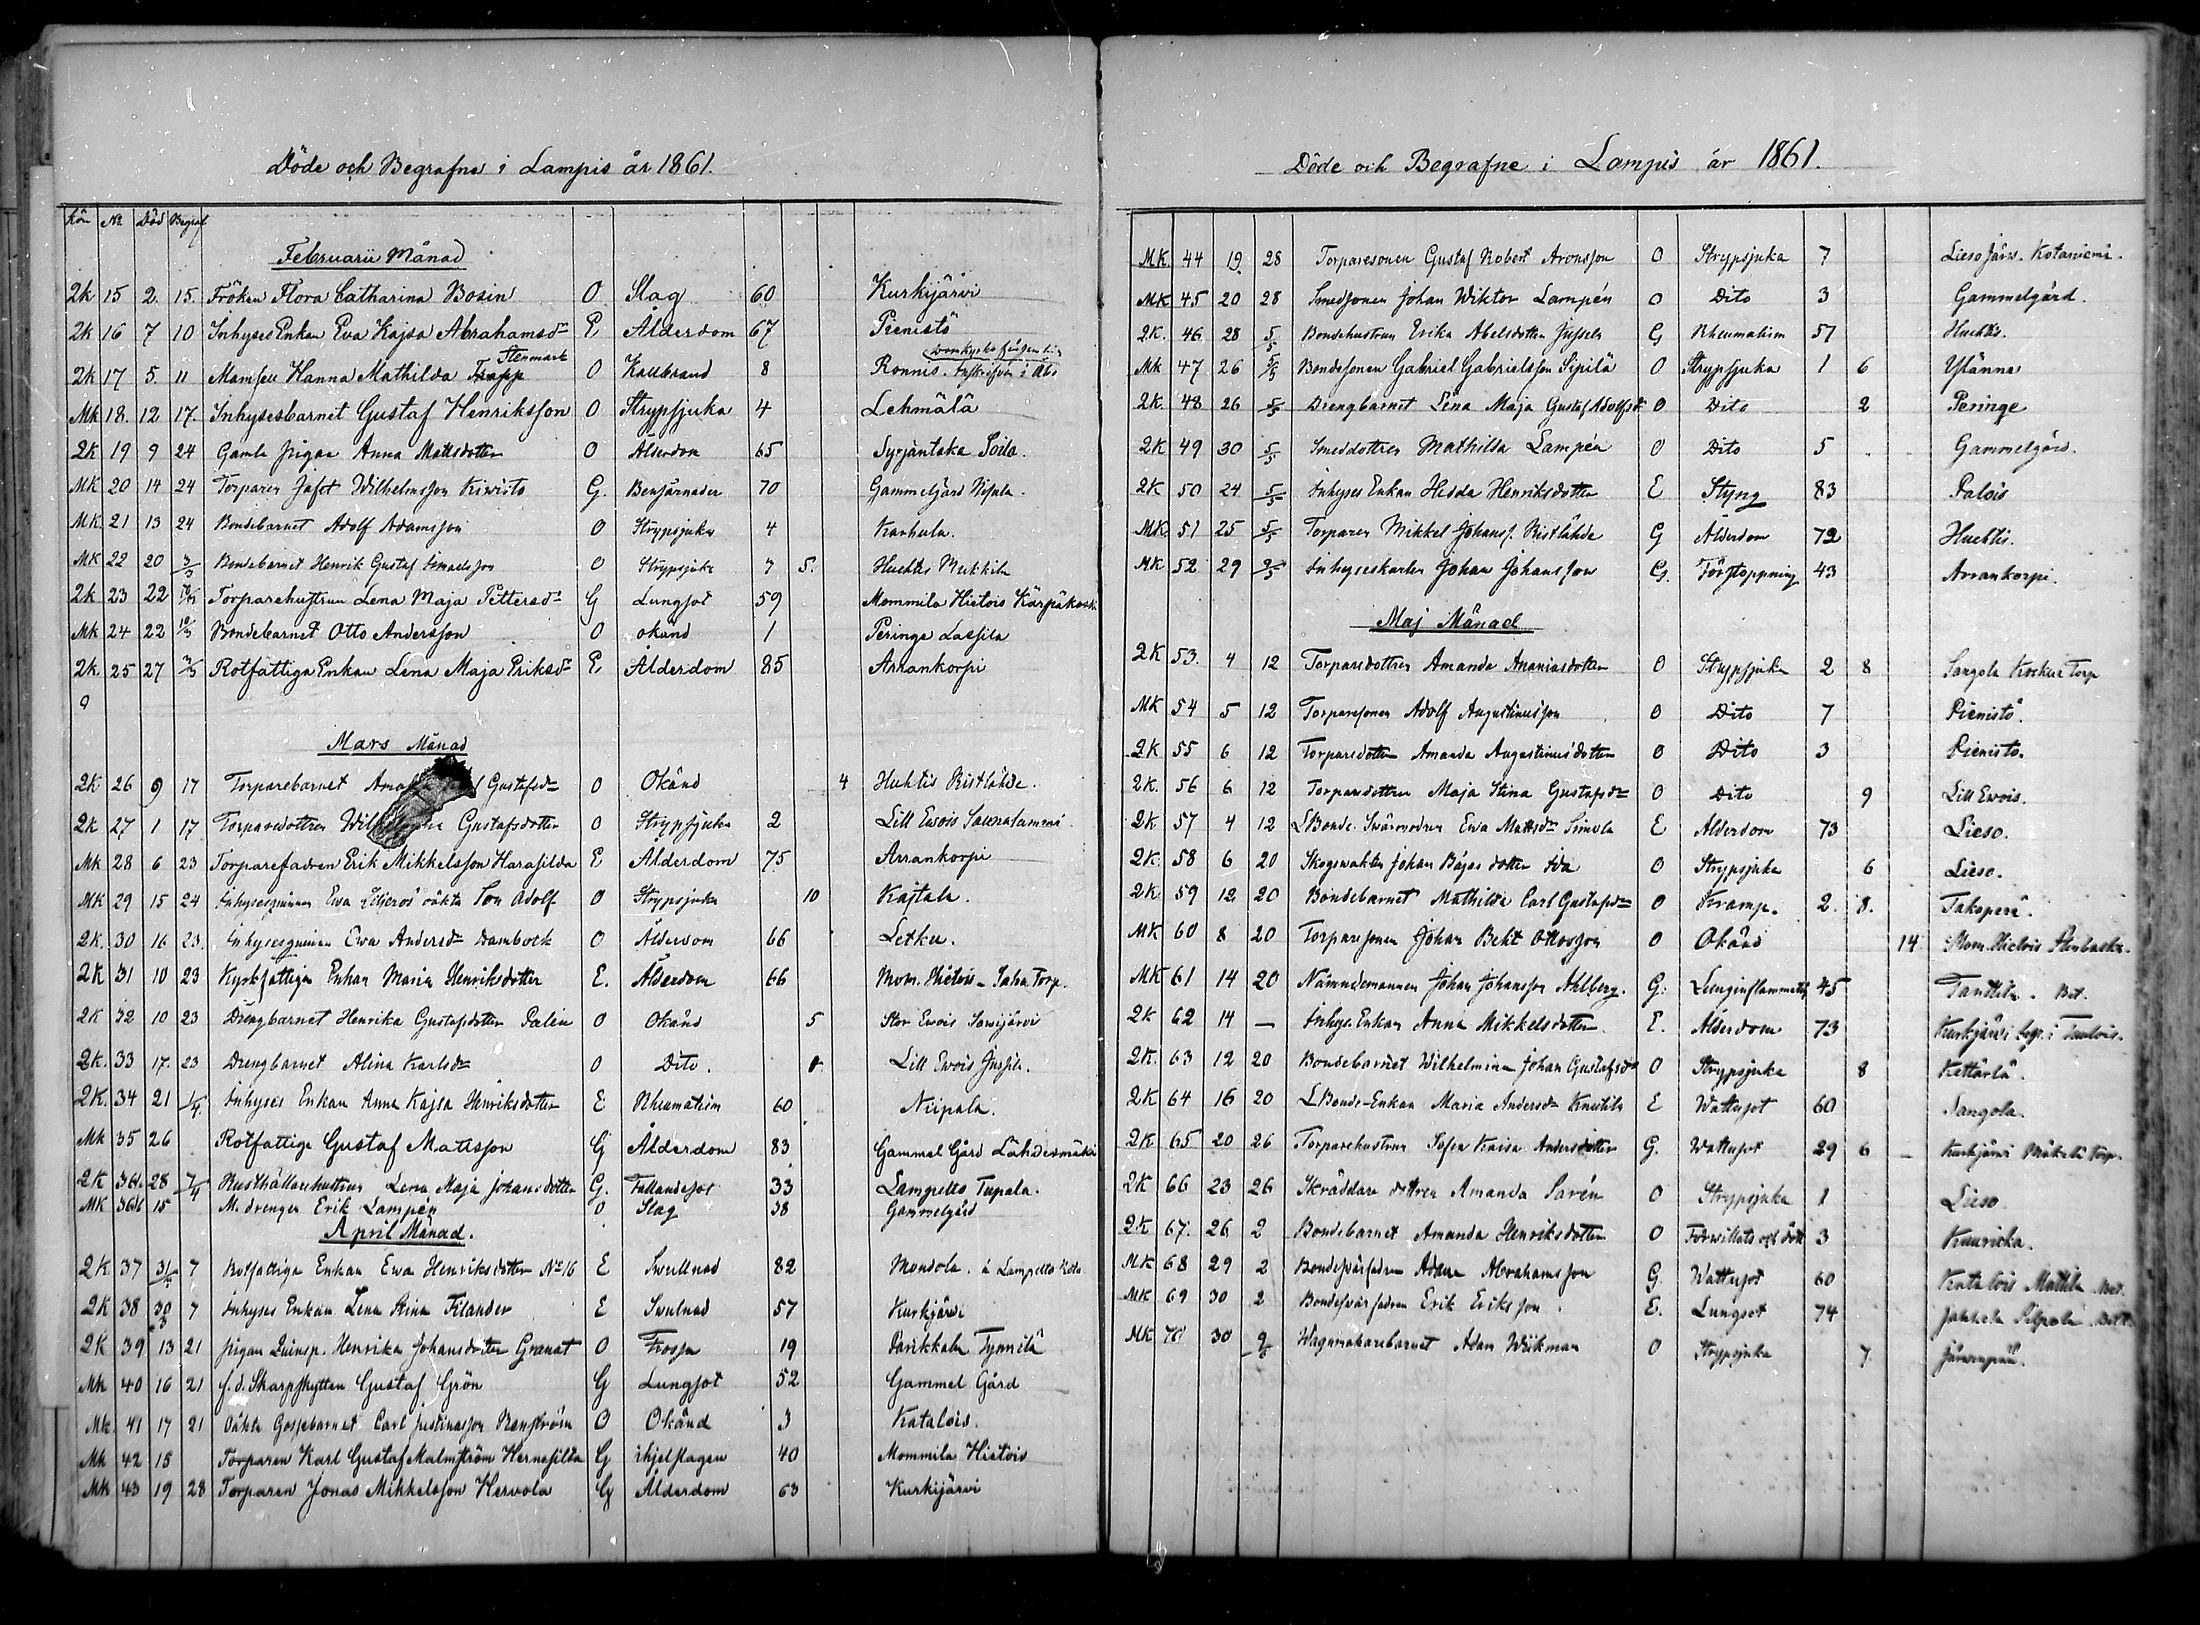 Döde och Begrafne i Lampis år 1861.
Kön No Död Begraf
Februarii Månad
Qk 15 2. 15. Fröken Flora Catharina Bosin O Slag 60 Kurkijärvi
Qk 16 7 10 Inhyses Enkan Eva Kajsa Abrahamsdr E Ålderdom 67 Pienistö
Stenmark
Qk 17 5. 11 Mamsell Hanna Mathilda Trapp O Kallbrand 8 Ronnis. i Åbo
Mk 18. 12 17. Inhysesbarnet Gustaf Henriksson O Strypsjuka 4 Lehmälä
Qk 19 9 24 Gamla pigan Anna Mattsdotter O Ålderdom 65 Syrjäntaka Soila.
MK 20 14 24 Torparen Jafet Wilhelmsson Kiwistö G. Benfrånader 70 Gammelgård
MK. 21 13 24 Bondebarnet Adolf Adamsson O Strypsjuka 4 Karhula.
MK 22 20 3/3 Bondebarnet Henrik Gustaf Ismaelsson O Strypsjuka 7 5. Huchtis
Qk 23 22 10/3 Torparehustrun Lena Maja Pettersdr G Lungsot 59 Mommila Hietois
Mk 24 22 10/3 Bondebarnet Otto Andersson O okänd 1 Peringe Lassila
Qk 25 27 Rotfattiga Enkan Lena Maja Eriksdr E Ålderdom 85 Arrankorpi
9
Mars Månad
QK 26 9 17 Torparebarnet Gustafsdr O Okänd 4 Huhtis Ristlähde.
Qk 27 1 17 Torparedottren Gustafsdotter O Strypsjuka 2 Lill Ewois Saunalammi
Mk 28 6 23 Torparefadren Erik Mikkelsson Harasilda E Ålderdom 75 Arrankorpi
MK 29 15 24 Inhysesqvinnan Ewa oäkta Son Adolf O Strypsjuka 10 Kastala.
QK. 30 16 23. Inhysesqvinnan Ewa Andersdr Dambock O Ålderdom 66 Letku.
QK 31 10 23 Kyrkfattiga Enkan Maria Henriksdotter E. Ålderdom 66 Mom. Hietois - Torp.
QK 32 10 23 Drengbarnet Henrika Gustafsdotter Palén O Okänd 5 Stor Ewois
QK. 33 17. 23 Drengbarnet Alina Karlsdr O Dito. Lill Ewois Jussila.
QK. 34 21 1/4 Inhyses Enkan Anna Kajsa Henriksdotter E Rheumatism 60 Niipala.
Mk 35 26 Rotfattige Gustaf Mattsson G Ålderdom 83 Gammel Gård Lähdesmäki
QK 36a 28 7/4 Rusthållarehustrun Lena Maja Johansdotter G. Fallandesot 33 Lampellto Tupala.
MK 36b 15 M. drengen Erik Lampén O Slag 38 Gammelgård
April Månad.
QK. 37 31/3 7 Rotfattiga Enkan Ewa Henriksdotter No 16 E Swullnad 82 Mondola. à Lampelto
QK 38 30/3 7 Inhyses Enkan Lena Stina Filander E Swulnad 57 Kurkjärvi
QK 39 13 21 pigan Henrika Johansdotter Granat O Frossa 19 Parikkala Tynnilä
Mk 40 16 21 f.d. Skarpskytten Gustaf Grön G Lungsot 52 Gammel Gård
Mk. 41 17 21 Oäkta Gossebarnet Carl Justinasson O Okänd 3 Katalois.
Mk 42 15 Torparen Karl Gustaf Malmström Hernesilda G ihjelslagen 40 Mommila Hietois
Mk 43 19 28 Torparen Jonas Mikkelsson Hervola G Ålderdom 63 Kurkijärvi
Döde och Begrafne i Lampis år 1861.
MK. 44 19. 28 Torparesonen Gustaf Robert Aronsson O Strypsjuka 7 Lieso Järv. Kotaniemi.
MK 45 20 28 Smedsonen Johan Wiktor Lampén O Dito 3 Gammelgård.
QK. 46 28 5/5 Bondehustrun Erika Abelsdotter Jussila G Rheumatism 57 Huchtis.
Mk 47 26 5/5 Bondesonen Gabriel Gabrielsson Sipilä O Strypsjuka 1 6 Ylänne
QK. 48 26 5/5 Drengbarnet Lena Maja Gustaf Adolfsdr O Dito 2 Peringe
QK 49 30 5/5 Smeddottren Mathilda Lampén O Dito 5 Gammelgård.
QK 50 24 5/5 Inhyses Enkan Hedda Henriksdotter E Styng 83 Palois
MK. 51 25 5/5 Torparen Mikkel Johanss. Ristlähde G Ålderdom 72 Huchtis.
MK 52 29 Inhyseskarlen Johan Johansson G. Förstoppning 43 Arrankorpi.
Maj Månad
QK 53. 4 12 Torparedottren Amanda Ananiasdotter O Strypsjuka 2 8 Sangola Torp
MK 54 5 12 Torparesonen Adolf Augustinusson O Dito 7 Pienistö.
QK 55 6 12 Torparedotter Amanda Augustinusdotter O Dito 3 Pienistö.
QK. 56 6 12 Torparedottren Maja Stina Gustafsdr O Dito 9 Lill Ewois.
QK 57 4 12 LBonde Swärmodren Ewa Mattsdr Simola E Ålderdom 73 Lieso.
QK. 58 6 20 Skogswakten Johan dotter Ida O Strypsjuka 6 Lieso.
QK. 59 12 20 Bondebarnet Mathilda Carl Gustafsdr O Kramp. 2. 8. Taksperä.
MK 60 8 20 Torparesonen Johan Ottosson O Okänd 14 Mom. Hietois
MK 61 14 20 Nämndemannen Johan Johansson Ahlberg. G. Lunginflammation 45 Tanttila.
QK 62 14 — Inhys. Enkan Anna Mikkelsdotter E. Ålderdom 73 Kurkjärvi begr. i Tuulois.
QK. 63 12 20 Bondebarnet Wilhelmina Johan Gustafsdr O Strypsjuka 8 Kettärlä.
QK 64 16 20 LBonde-Enkan Maria Andersdr Knuutila E Wattusot 60 Sangola.
QK 65 20 26 Torparehustrun Sofia Kaisa Andersdotter G. Wattusot 29 6 — Kurkjärvi Mäkelä Torp.
QK 66 23 26 Skräddare dottren Amanda Sarén O Strypsjuka 1 Lieso.
QK 67. 26 2 Bondebarnet Amanda Henriksdotter O Förwillats och dött 3 Kauriala.
MK 68 29 2 Bondeswärfadren Adam Abrahamsson G. Wattusot 60 Katalois Mattila
MK 69 30 2 Bondeswärfadren Erik Eriksson E. Lungsot 74 Jahkola Pilpola
MK 70 30 9/6 Wagnmakarebarnet Adam Wiikman O Strypsjuka 7. Järvenpää.